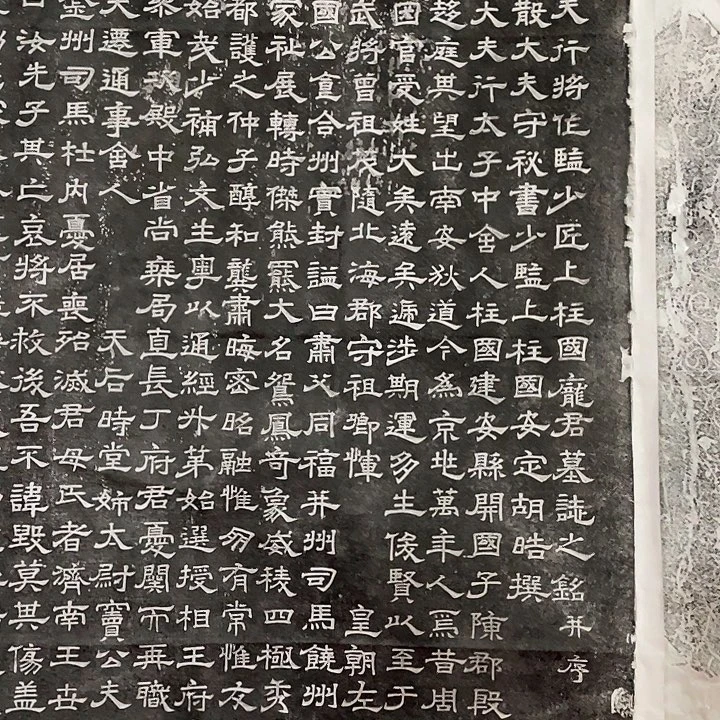 天行將作監少匠上柱國龐君墓誌之銘并序
散大夫守祕書少監上柱國安定胡晧撰
大夫行太子中舍人柱國建安縣開國子陳郡段
趍庭其望出南安狄道今為京地萬年人焉昔周
國官受姓大矣遠矣遞涉期運多生俊賢以至于
武將曾祖茂隨北海郡守祖卿惲皇朝左
國公食合州實封謚曰肅父同福并州司馬饒州
家祉展轉時傑熊羆大名鴛鳳奇象威稜四極秀
都護之仲子醇和龔肅晦密昭融惟孝有常惟友
始於少補弘文生粵以通經升第始選授相王府
參軍殿中省尚乗局直長丁府君憂闋而再職
天遷通事舍人天后時堂姉太尉竇公夫
金州司馬杜內憂居喪殆滅君母氏者濟南王世
日汝先子其亡哀將不救後吾不諱毀莫其傷盖